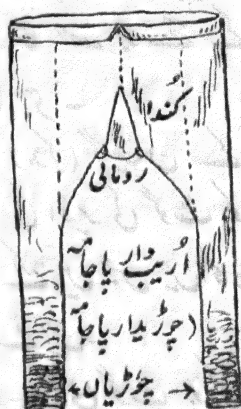 کُندا
رومالی
اُریب دار پاجامہ
(چوڑیدار پاجامہ
چوڑیاں